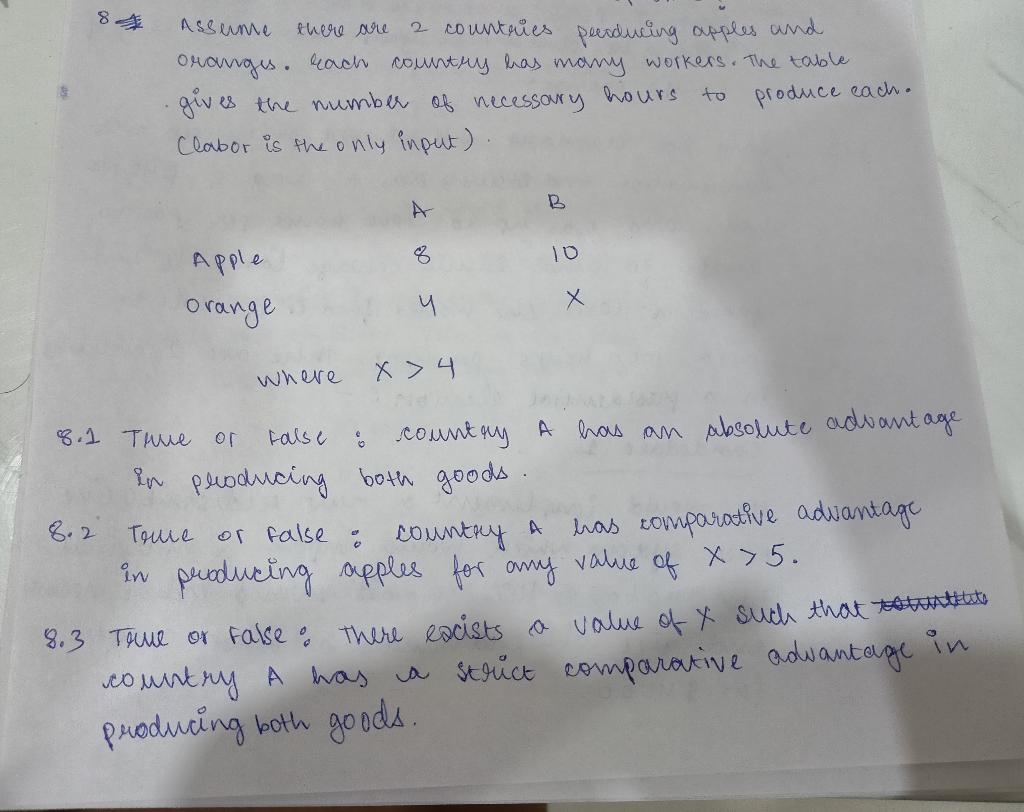 8 Assume there are 2 countries producing apples and
oranges. Each country has many workers. The table
gives the number of necessary hours to produce each.
(labor is the only input).
A B
Apple 8 10
Orange 4 X
where X > 4
8.1 True or False : country A has an absolute advantage
in producing both goods.
8.2 True or False : country A has comparative advantage
in producing apples for any value of X > 5.
8.3 True or False : There exists a value of X such that
country A has a strict comparative advantage in
producing both goods.